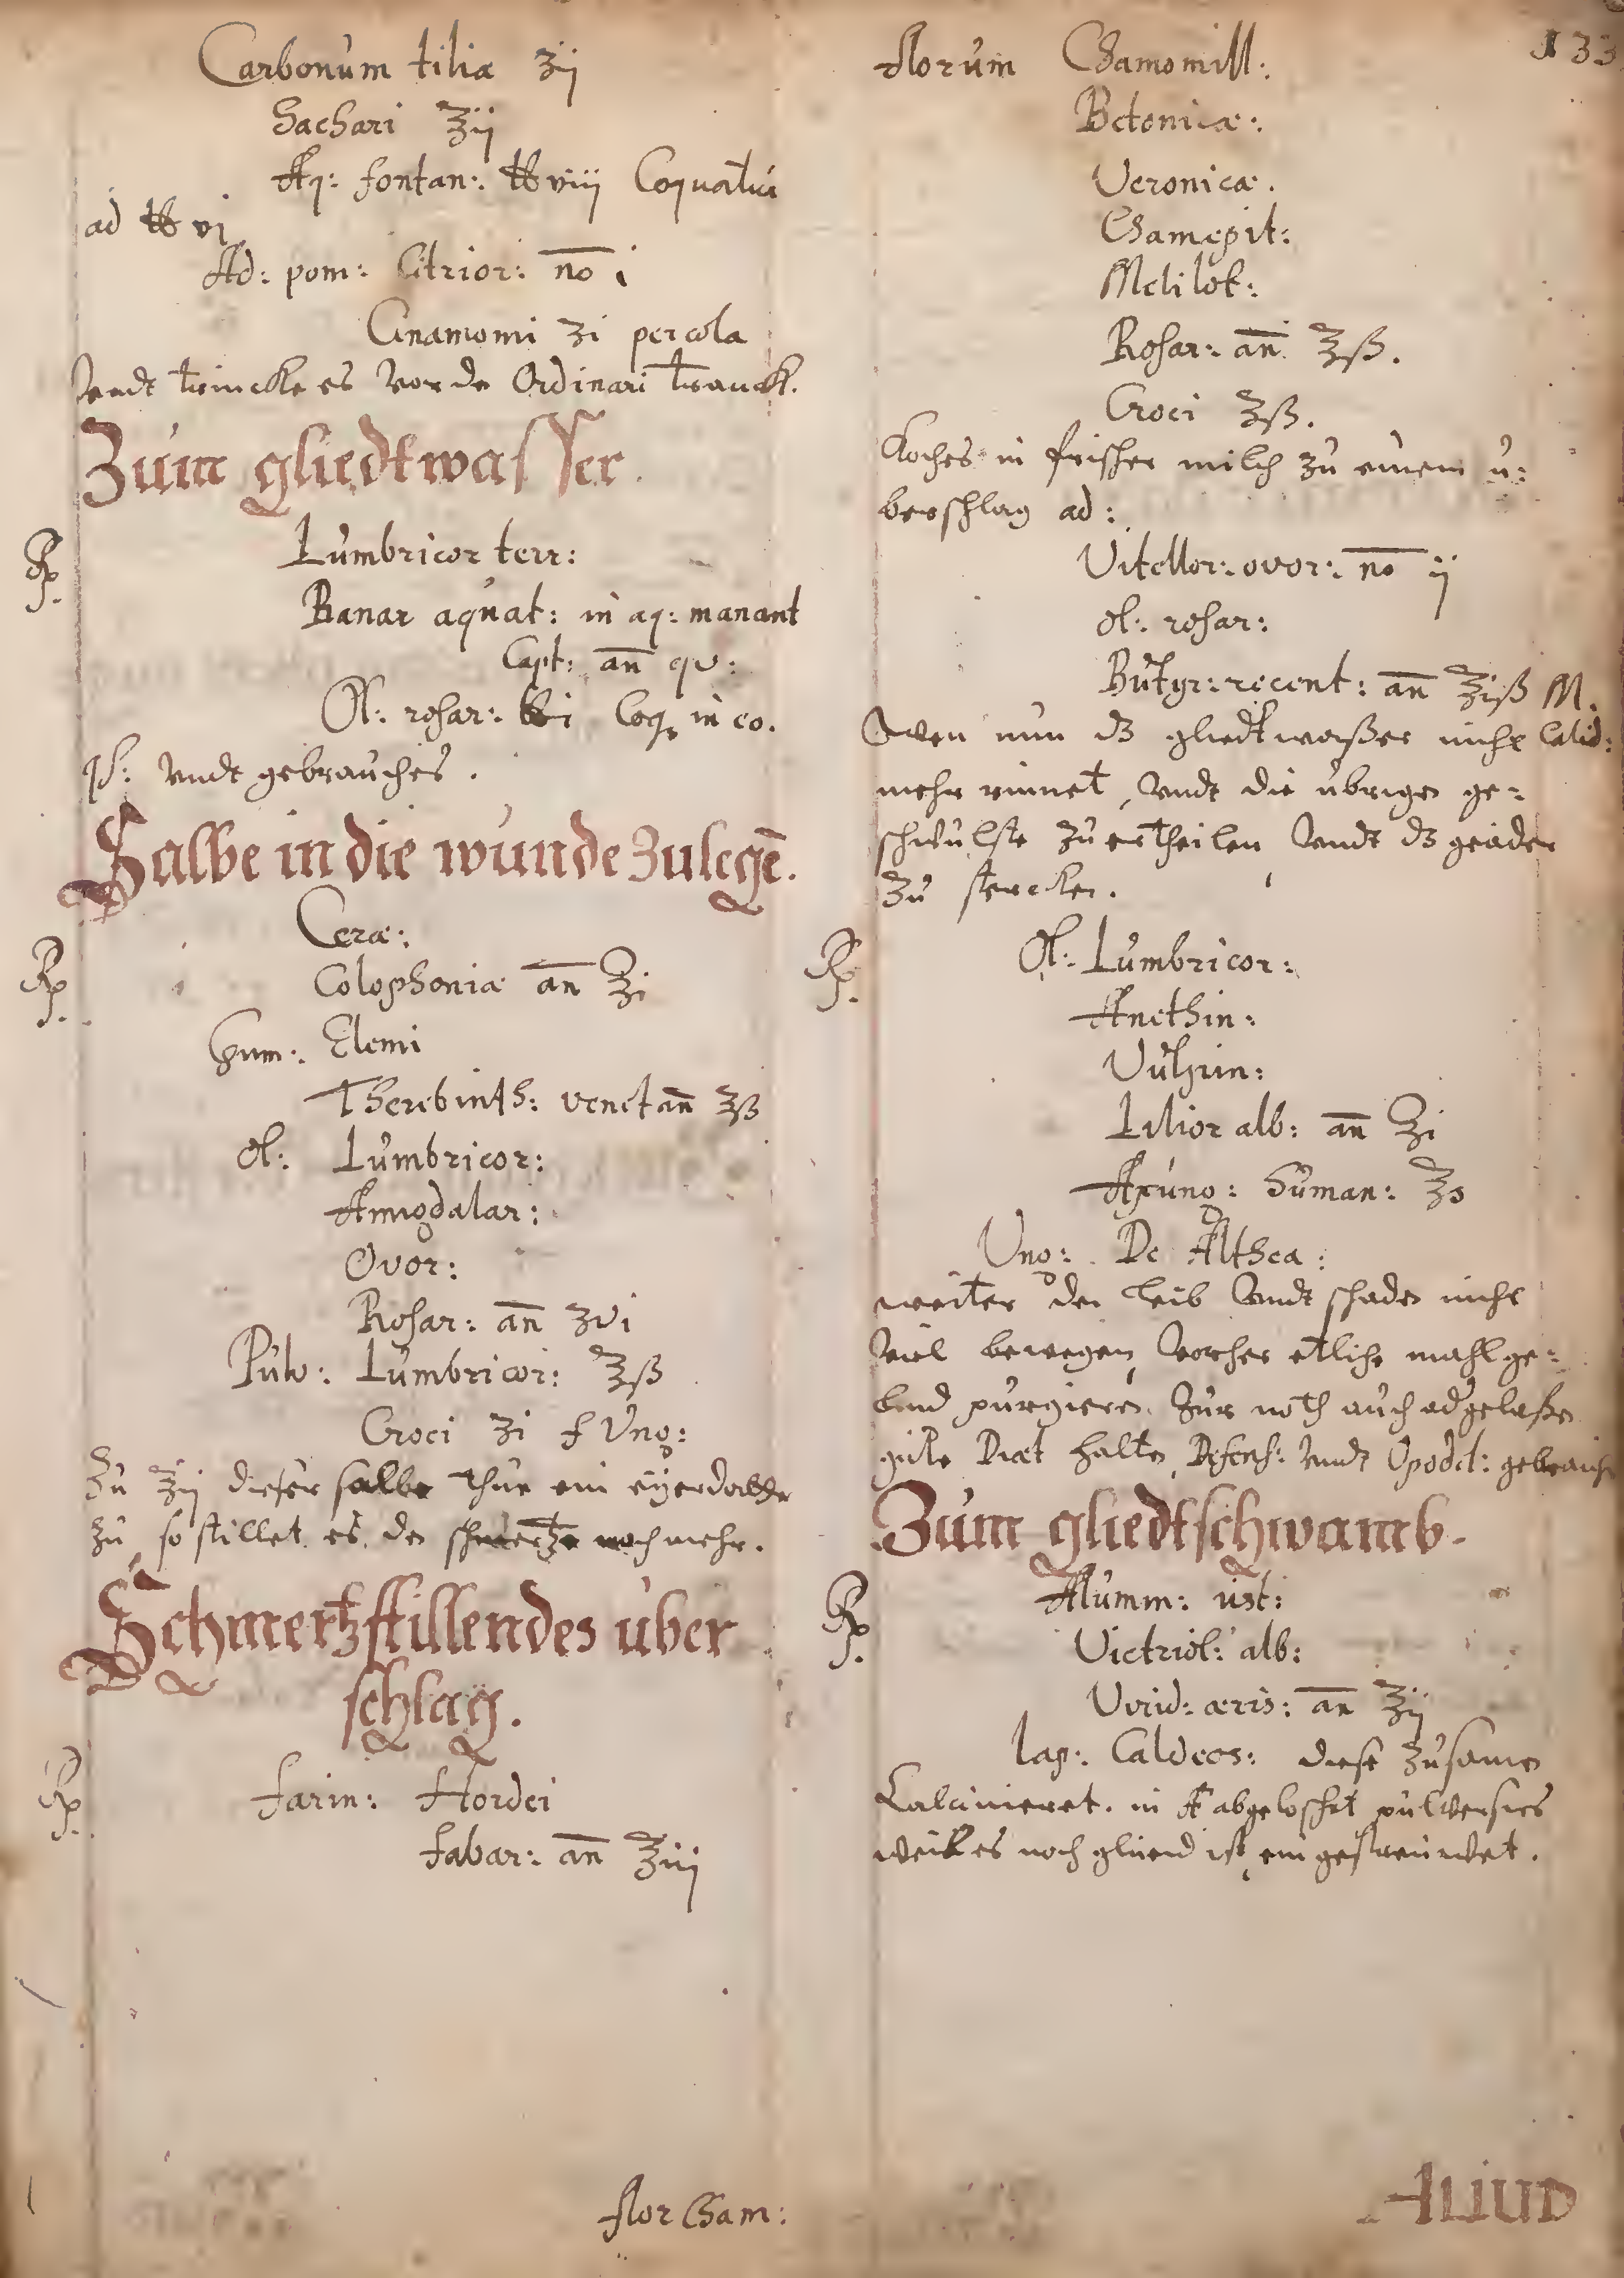 Carbonum tiliæ ʒij
Sachari ℥ij
Aq: fontan: ℔ viij Coquatur
ad ℔ vj
Ad: pom: Citrior: no i
Cinamomi ʒi percola
Vndt trincke es vor de Ordinari tranck.
Zum gliedtwasser.
℞ Lumbricor terr:
Ranar aquat: in aq: manant
Capt: an qv:
Ol: rosar: ℔i Coq in eo.
Vndt gebrauches.
Salbe in die wunde zulegē.
℞ Ceræ:
Colophoniæ an ℥i
Gum: Elemi
Therebinth: venet an ℥ß
ol: Lumbricor:
Amigdalar:
Ovor:
Rosar: an ʒvi
Pulv: Lumbricor: ℥ß
Croci ʒi f Ung:
Zu ℥ij dieser salbe thue ein eyerdotter
zu so stillet es den schmertze noch mehr.
Schmertzstillendes uber
schlag.
℞ Farin: Hordei
Fabar: an ℥iij
flor Cham:
133
Florum Chamomill:
Betonicæ:
Veronicæ.
Chamepit:
Melilot:
Rosar: an ℥ß.
Croci ℥ß.
Koches in frischer milch zu einem u:
berschlag ad:
Vitellor: ovor: no ij
ol: rosar:
Butyr: recent: an ℥iß M.
Wen nun dz gliedtwaßer nicht
mehr rinnet, vndt die ubrigen ge-
schwulste zu ertheilen vndt dz geäder
zu stercken.
℞ Ol: Lumbricor:
Anethin:
Vulpin:
Lilior alb: an ℥i
Axung: human: ℥s
Ung: De Althea:
weiter den leib vndt schaden nicht
viel bewegen, vorher etliche mahl ge-
lind purgieren. Zur noth auch adgelaßen
gute Diæt halten, Defens: vndt Opodel: gebrauch
Zum gliedtschwamb.
℞ Alumm: ust:
Victriol: alb:
Virid: æris: an ℥ij
lap: Caldeos: diese zusamen
Calcinieret. in A abgeloschet pulversirs
weil es noch gluend ist, ein gestreuwet.
ALIUD